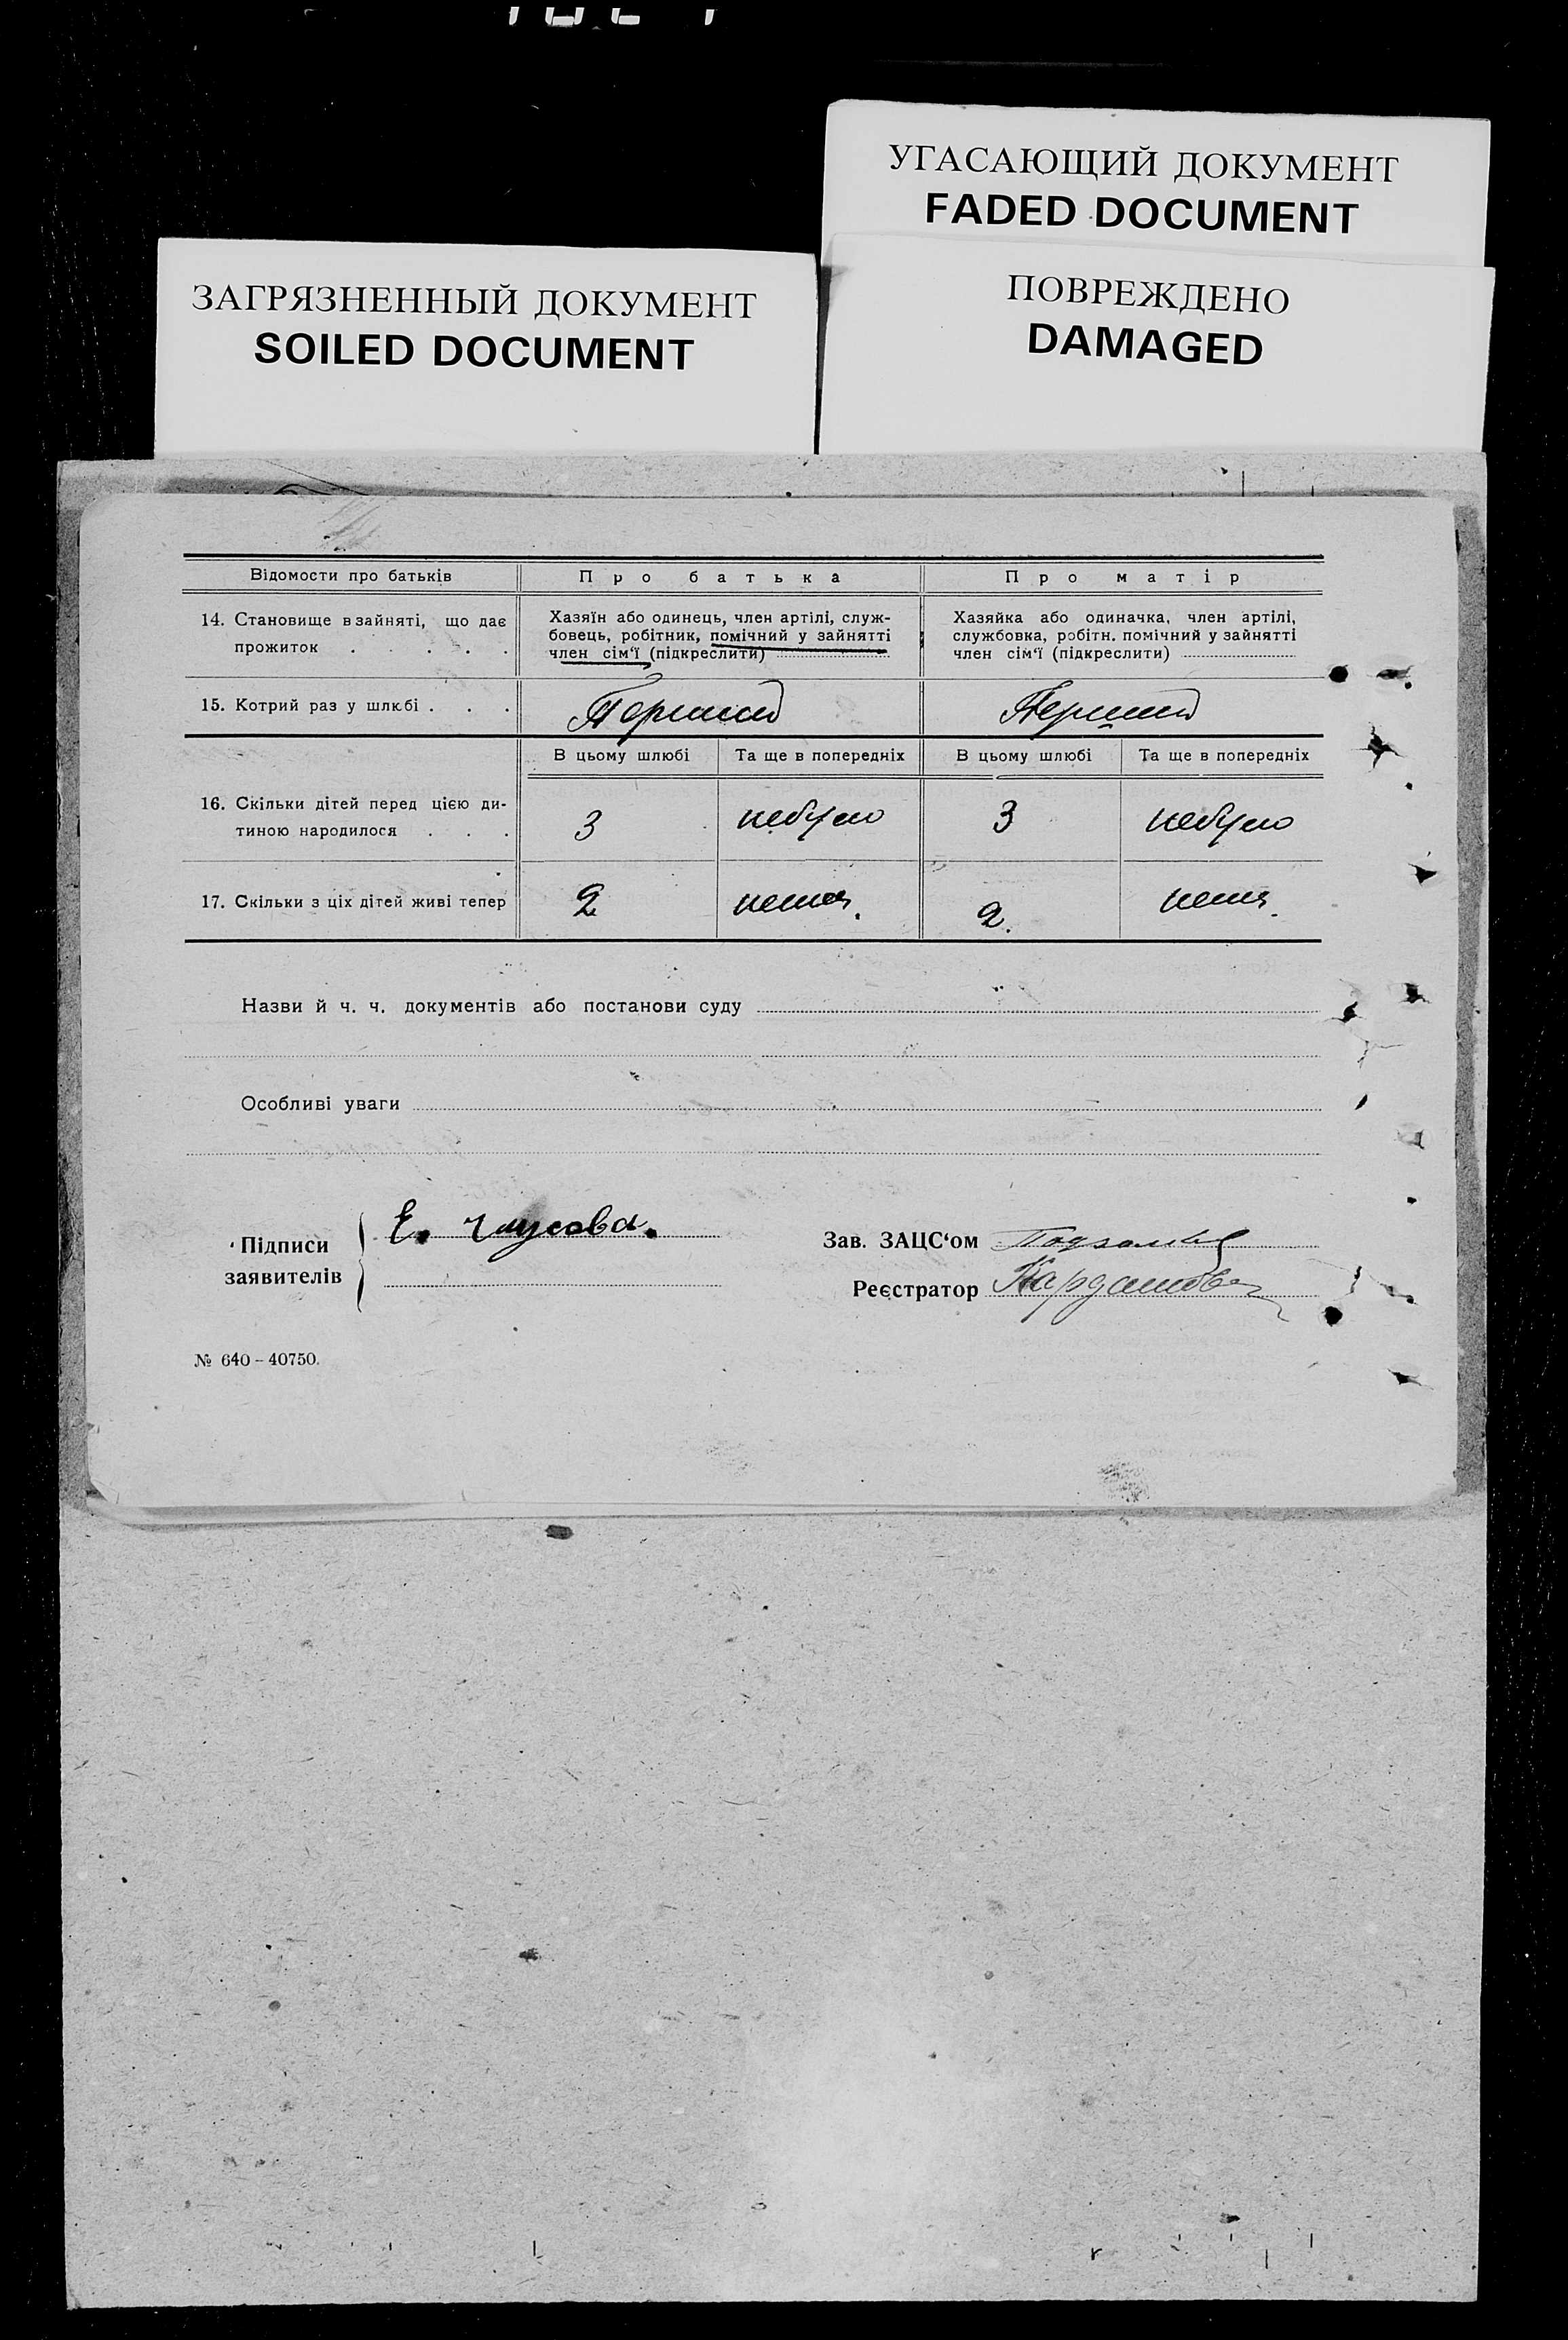 УГАСАЮЩИЙ ДОКУМЕНТ
FADED DOCUMENT
ЗАГРЯЗНЕННЫЙ ДОКУМЕНТ
SOILED DOCUMENT
ПОВРЕЖДЕНО
DAMAGED
Відомости про батьків Про батька Про матір
14. Становище в зайняті, що дає прожиток . . . . .
Хазяїн або одинець, член артілі, служ-
бовець, робітник, помічний у зайнятті
член сім'ї (підкреслити)
Хазяйка або одиначка, член артілі,
службовка, робітн. помічний у зайнятті
член сім'ї (підкреслити)
15. Котрий раз у шлюбі . . . Перший Перший
В цьому шлюбі Та ще в попередніх В цьому шлюбі Та ще в попередніх
16. Скільки дітей перед цією ди-
тиною народилося . . . 3 небуло 3 небуло
17. Скільки з ціх дітей живі тепер 2 нема. 2. нема.
Назви й ч. ч. документів або постанови суду
Особливі уваги
Підписи
заявителів
Е.
Зав. ЗАЦС'ом
Реєстратор
№ 640-40750.